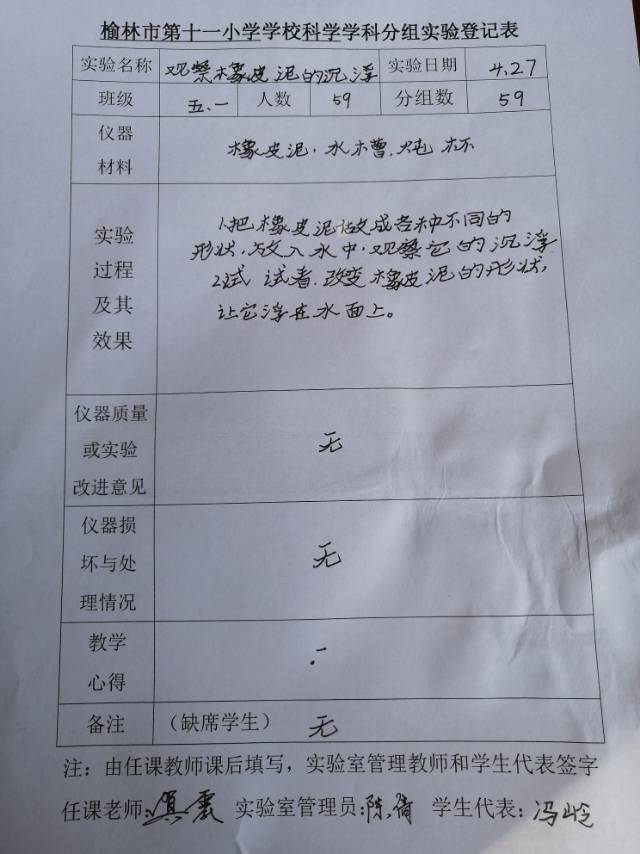 榆林市第十一小学学校科学学科分组实验登记表
实验名称 观察橡皮泥的沉浮 实验日期 4.27
班级 五.一 人数 59 分组数 59
仪器
材料
橡皮泥.水槽.烧杯
实验
过程
及其
效果
1.把橡皮泥做成各种不同的
形状,放入水中,观察它的沉浮
2.试试看.改变橡皮泥的形状,
让它浮在水面上。
仪器质量
或实验
改进意见
无
仪器损
坏与处
理情况
无
教学
心得
备注 (缺席学生) 无
注:由任课教师课后填写,实验室管理教师和学生代表签字
任课老师: 实验室管理员:陈 学生代表:冯